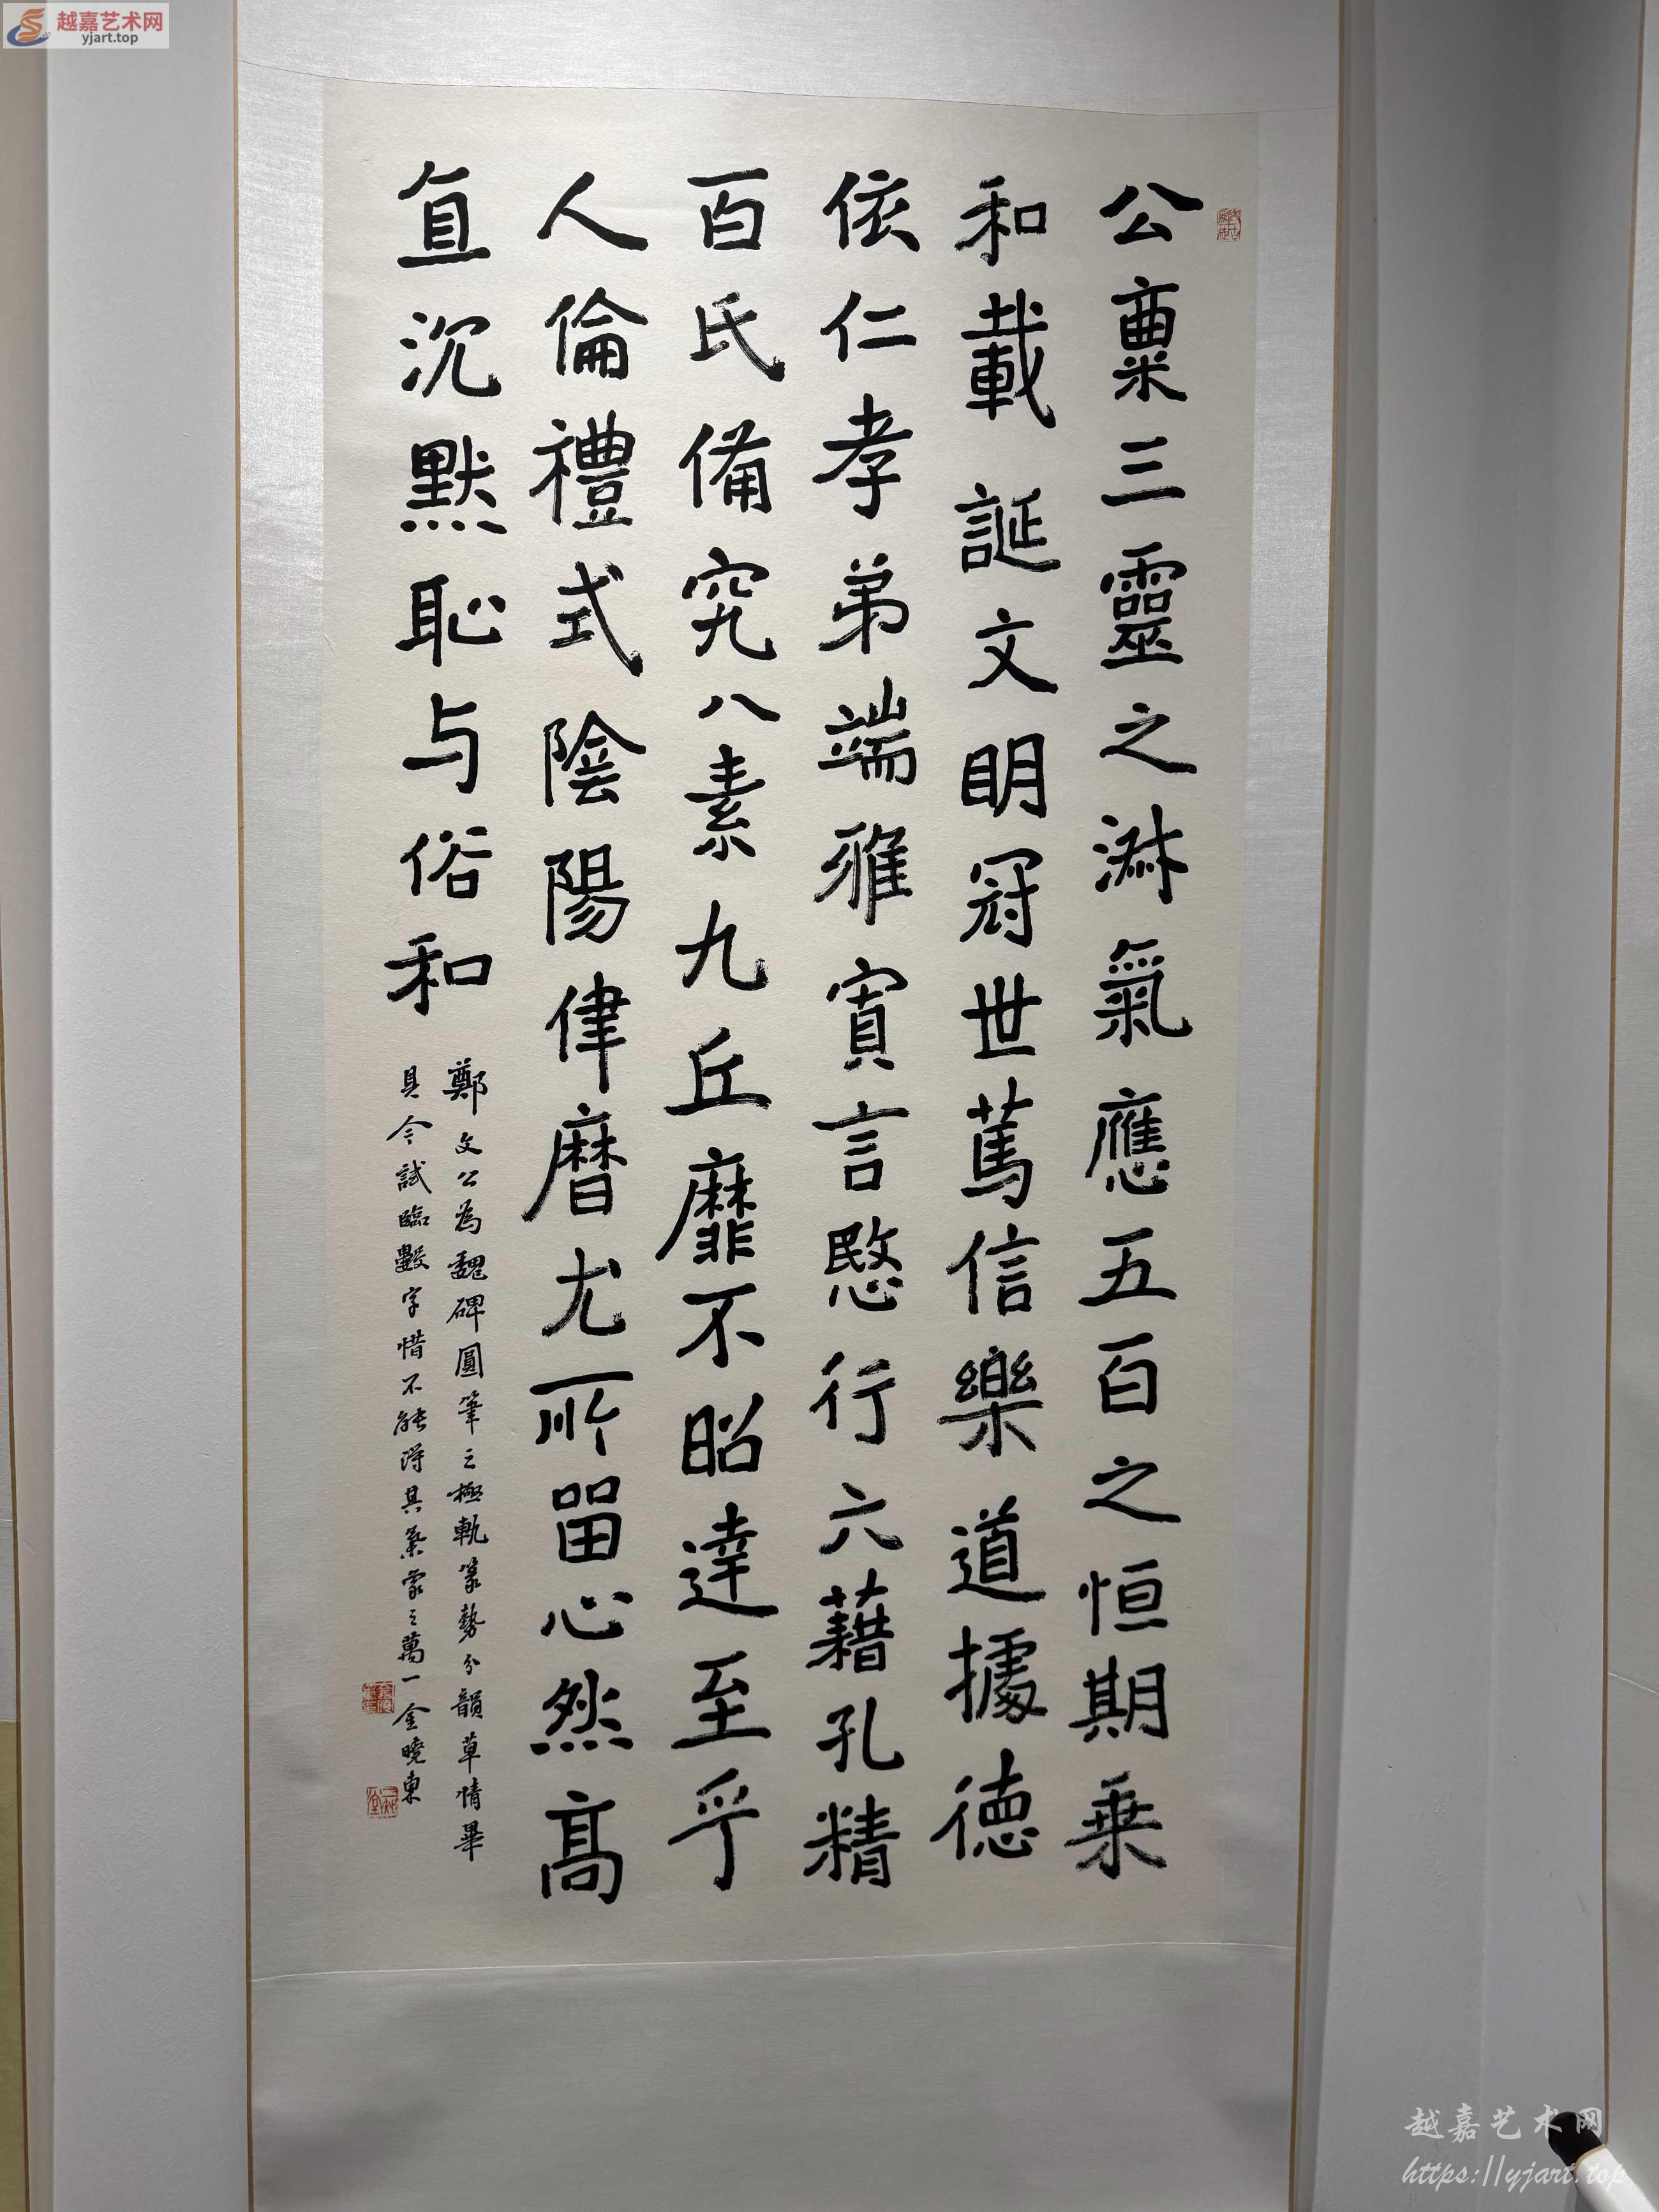 越嘉艺术网
yjart.top
公稟三靈之淋氣應五百之恒期乗
和載誕文明冠世篤信樂道據德
依仁孝弟端雅寡言愍行六藉孔精
百氏備究八素九丘靡不昭達至乎
人倫禮式陰陽律曆尤所留心然髙
直沉黙恥与俗和
鄭文公為魏碑圓筆之極軌篆勢分韻草情畢
具今試臨數字惜不能得其氣象之萬一金曉東
越嘉艺术网
https://yjart.top